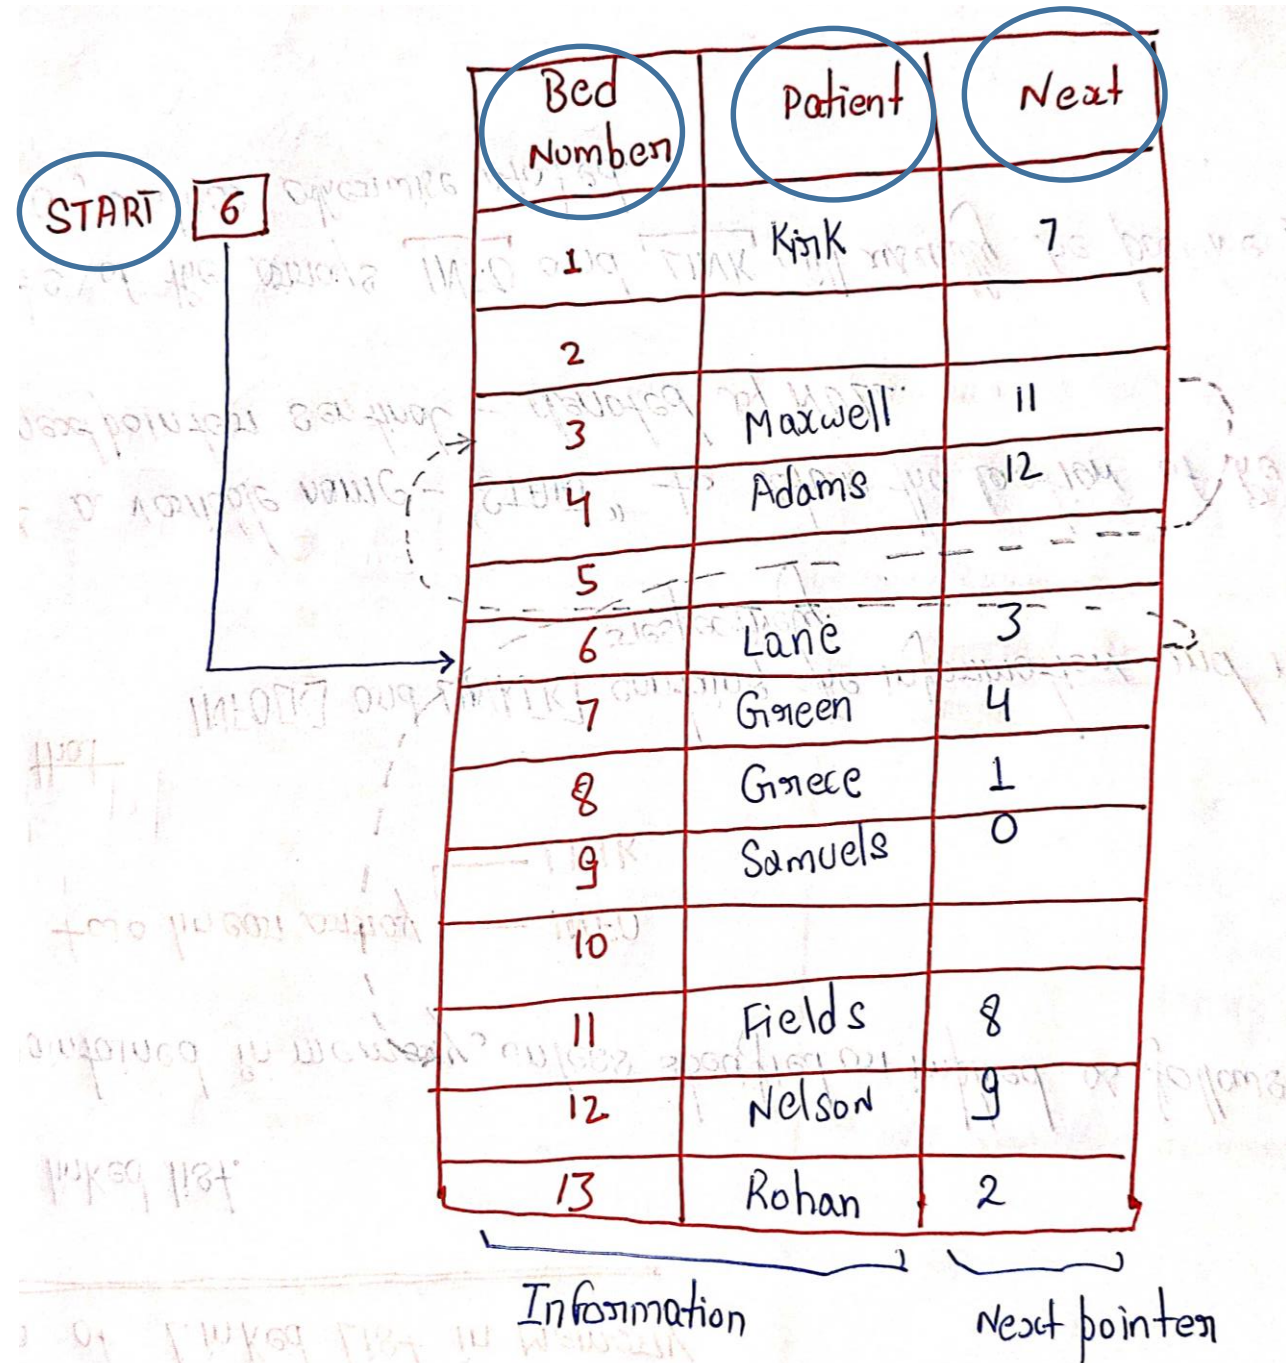 Bed Number Patient Next
START 6
1 Kirk 7
2
3 Maxwell 11
4 Adams 12
5
6 Lane 3
7 Green 4
8 Grece 1
9 Samuels 0
10
11 Fields 8
12 Nelson 9
13 Rohan 2
Information Next pointer